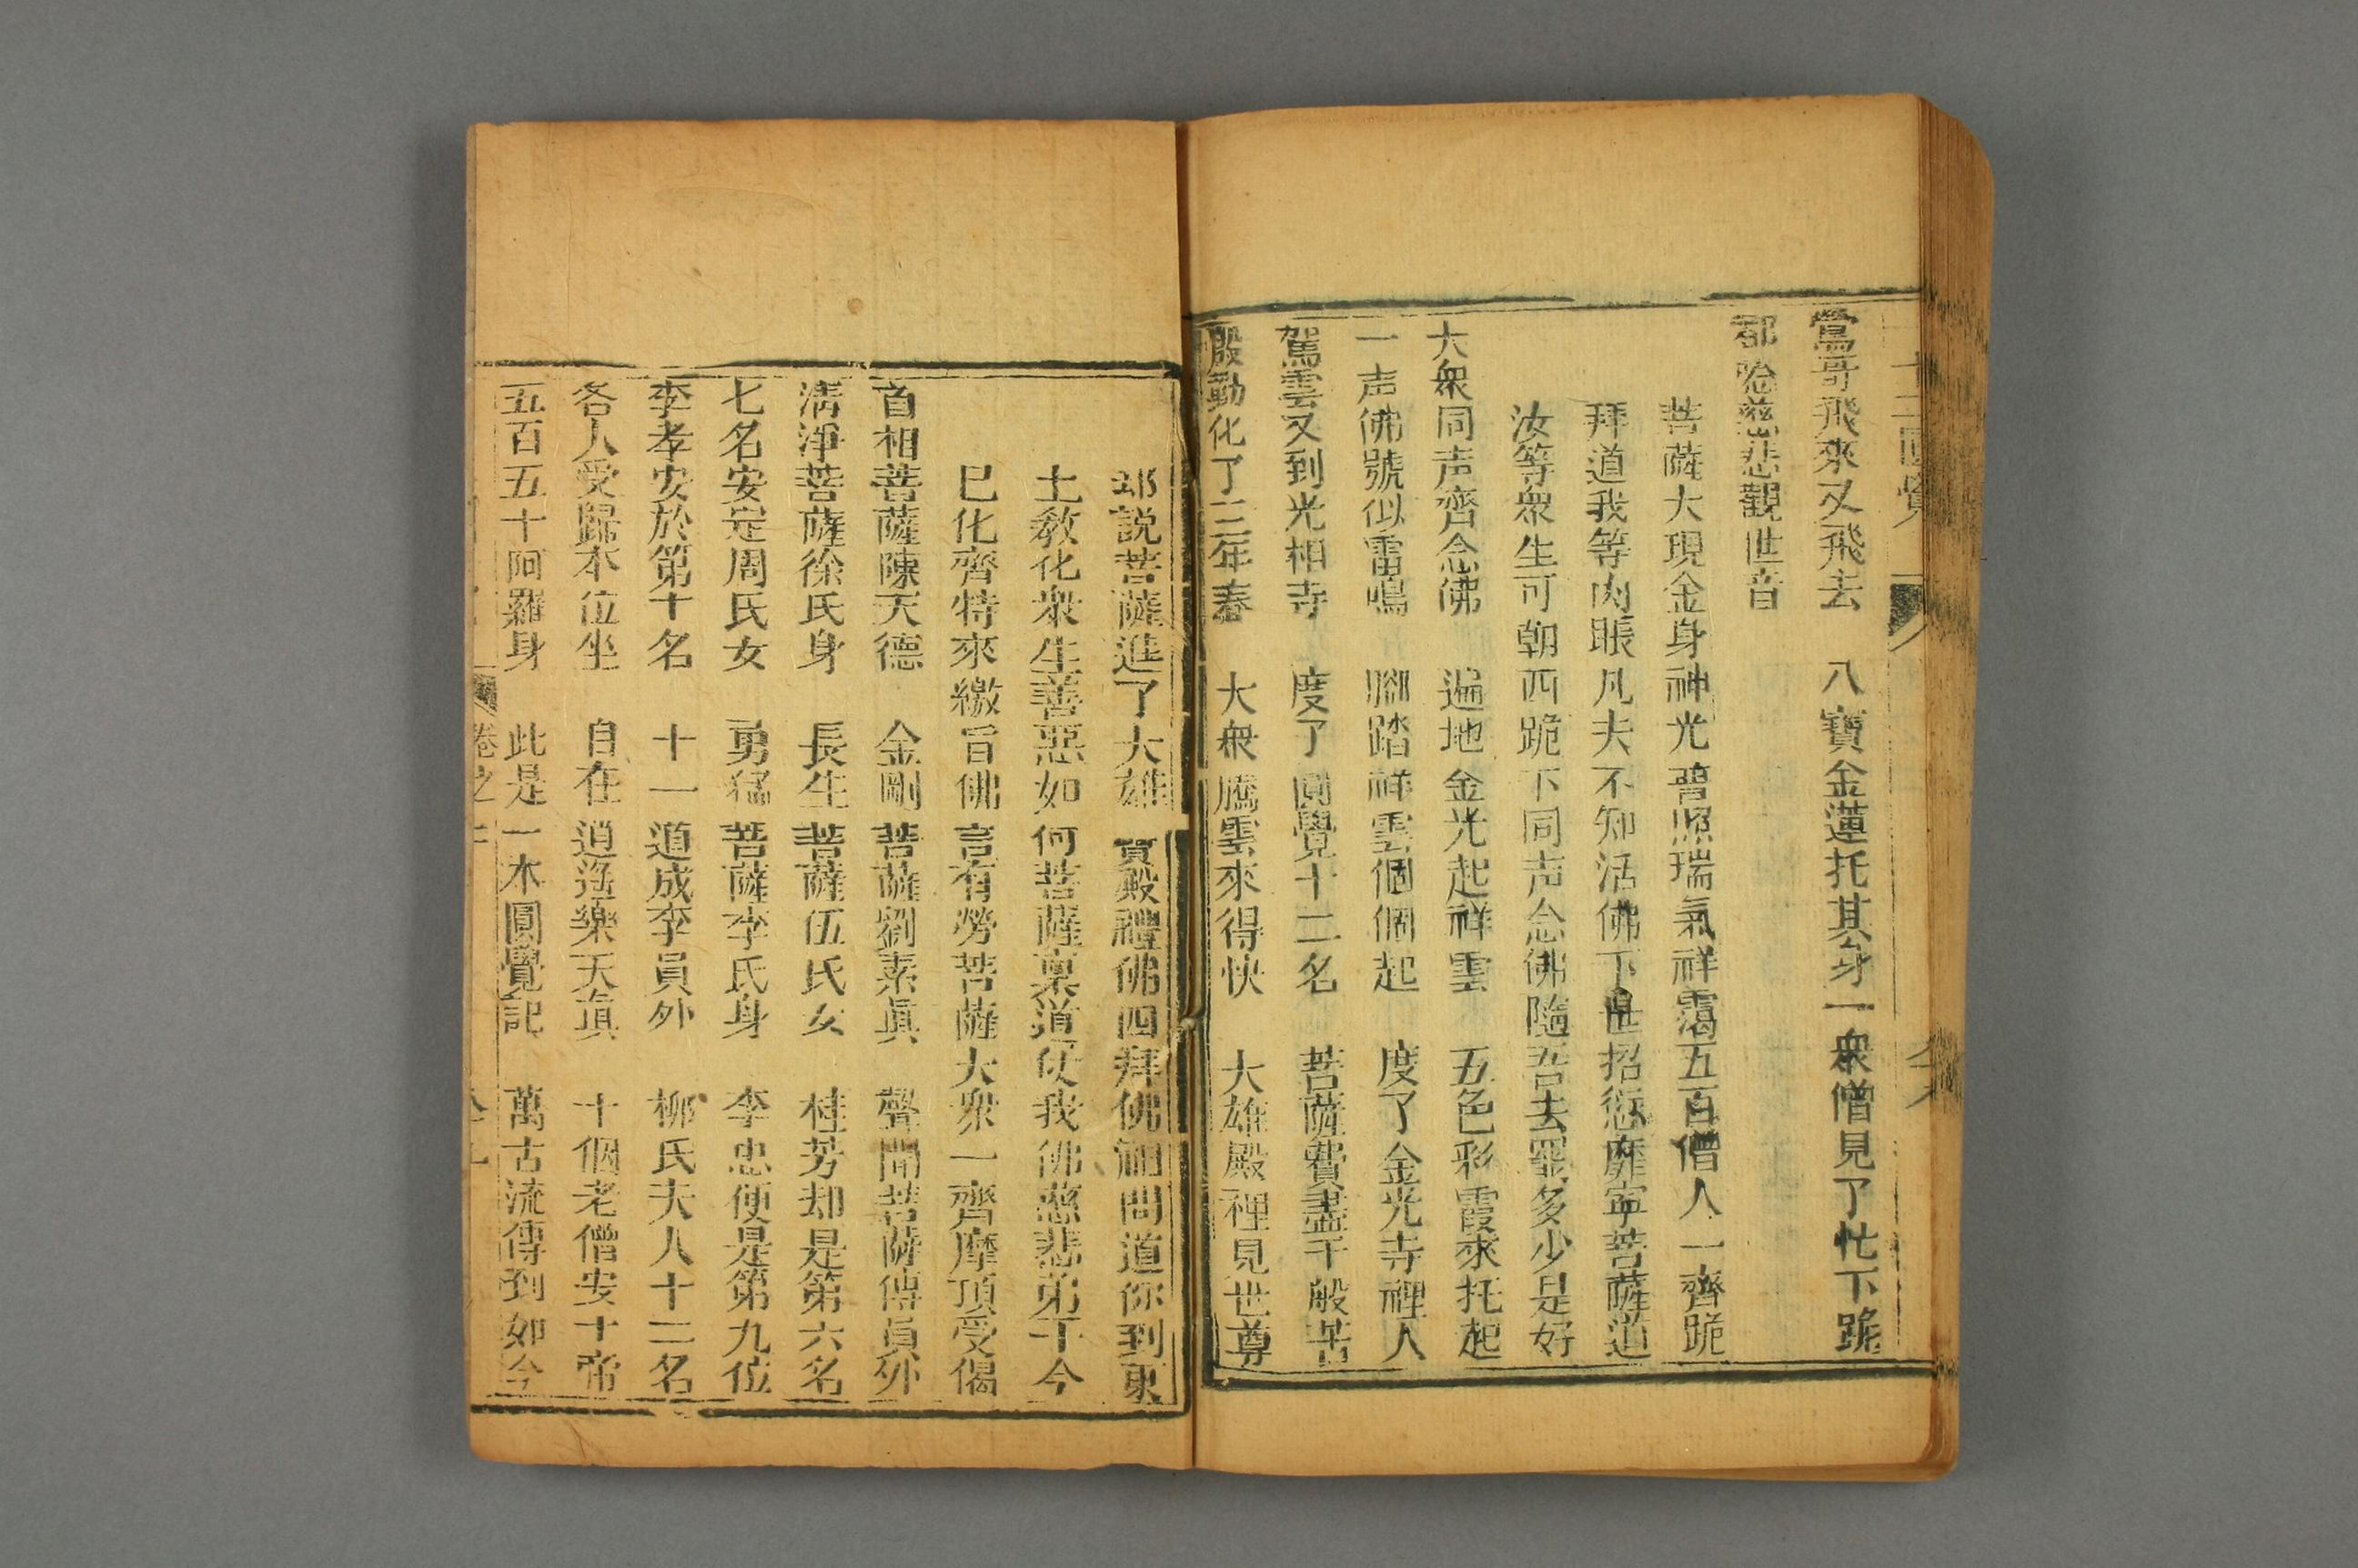 十二圓覺
鶯哥飛來又飛去 八寶金蓮托其身 一衆僧見了忙下跪
都念慈悲觀世音
菩薩大現金身神光普照瑞氣祥靄五百僧人一齊跪
拜道我等肉眼凡夫不知活佛下世招愆靡寧菩薩道
汝等衆生可朝西跪下同声念佛隨吾去罪多少是好
大衆同声齊念佛 遍地金光起祥雲 五色彩霞來托起
一声佛號似雷鳴 腳踏祥雲個個起 度了金光寺裡人
駕雲又到光相寺 度了圓覺十二名 菩薩費盡千般苦
殷勤化了三年春 大衆騰雲來得快 大雄殿裡見世尊
却説菩薩進了大雄寳殿禮佛四拜佛祖問道你到東
土教化衆生善惡如何菩薩禀道仗我佛慈悲弟子今
已化齊特來繳旨佛言有勞菩薩大衆一齊摩頂受偈
首相菩薩陳天德 金剛菩薩劉素眞 聲聞菩薩傅員外
淸淨菩薩徐氏身 長生菩薩伍氏女 桂芳却是第六名
七名安定周氏女 勇猛菩薩李氏身 李忠便是第九位
李孝安於第十名 十一道成李員外 柳氏夫人十二名
各人受歸本位坐 自在逍遥樂天眞 十個老僧安十帝
五百五十阿羅身 此是一本圓覺記 萬古流傳到如今
卷之